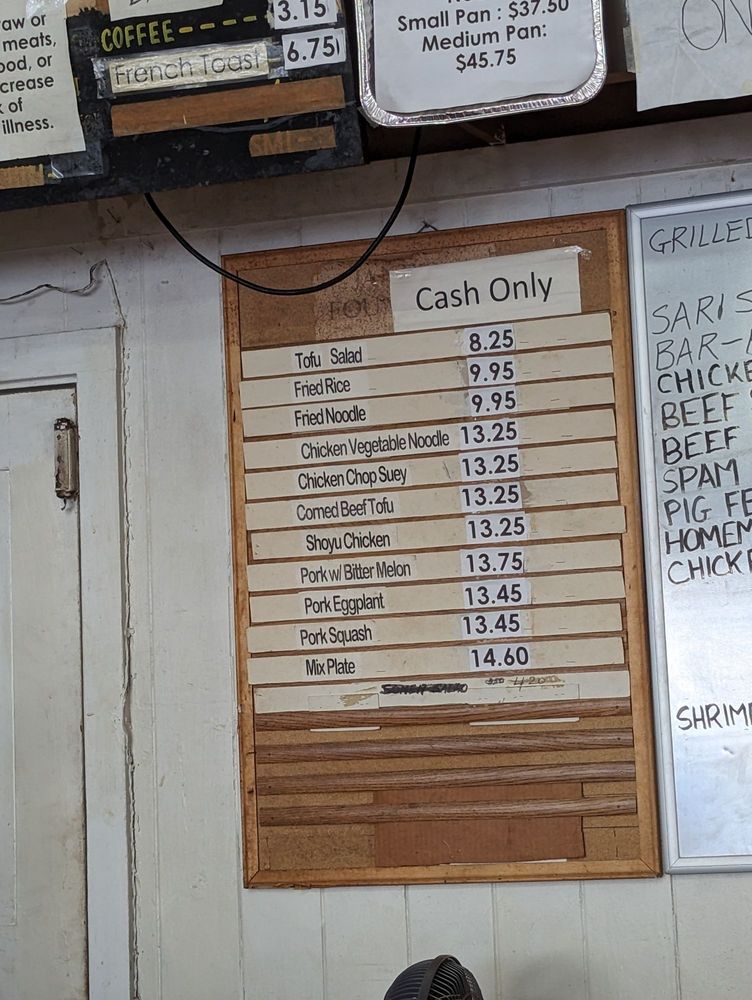 aw or
meats,
ood, or
crease
k of
illness.
COFFEE---- 3.15
French Toast 6.75
Small Pan : $37.50
Medium Pan:
$45.75
ON
Cash Only
Tofu Salad 8.25
Fried Rice 9.95
Fried Noodle 9.95
Chicken Vegetable Noodle 13.25
Chicken Chop Suey 13.25
Corned Beef Tofu 13.25
Shoyu Chicken 13.25
Pork w/ Bitter Melon 13.75
Pork Eggplant 13.45
Pork Squash 13.45
Mix Plate 14.60
GRILLED
SARI S
BAR-
CHICKE
BEEF
BEEF
SPAM
PIG FE
HOMEM
CHICK
SHRIM